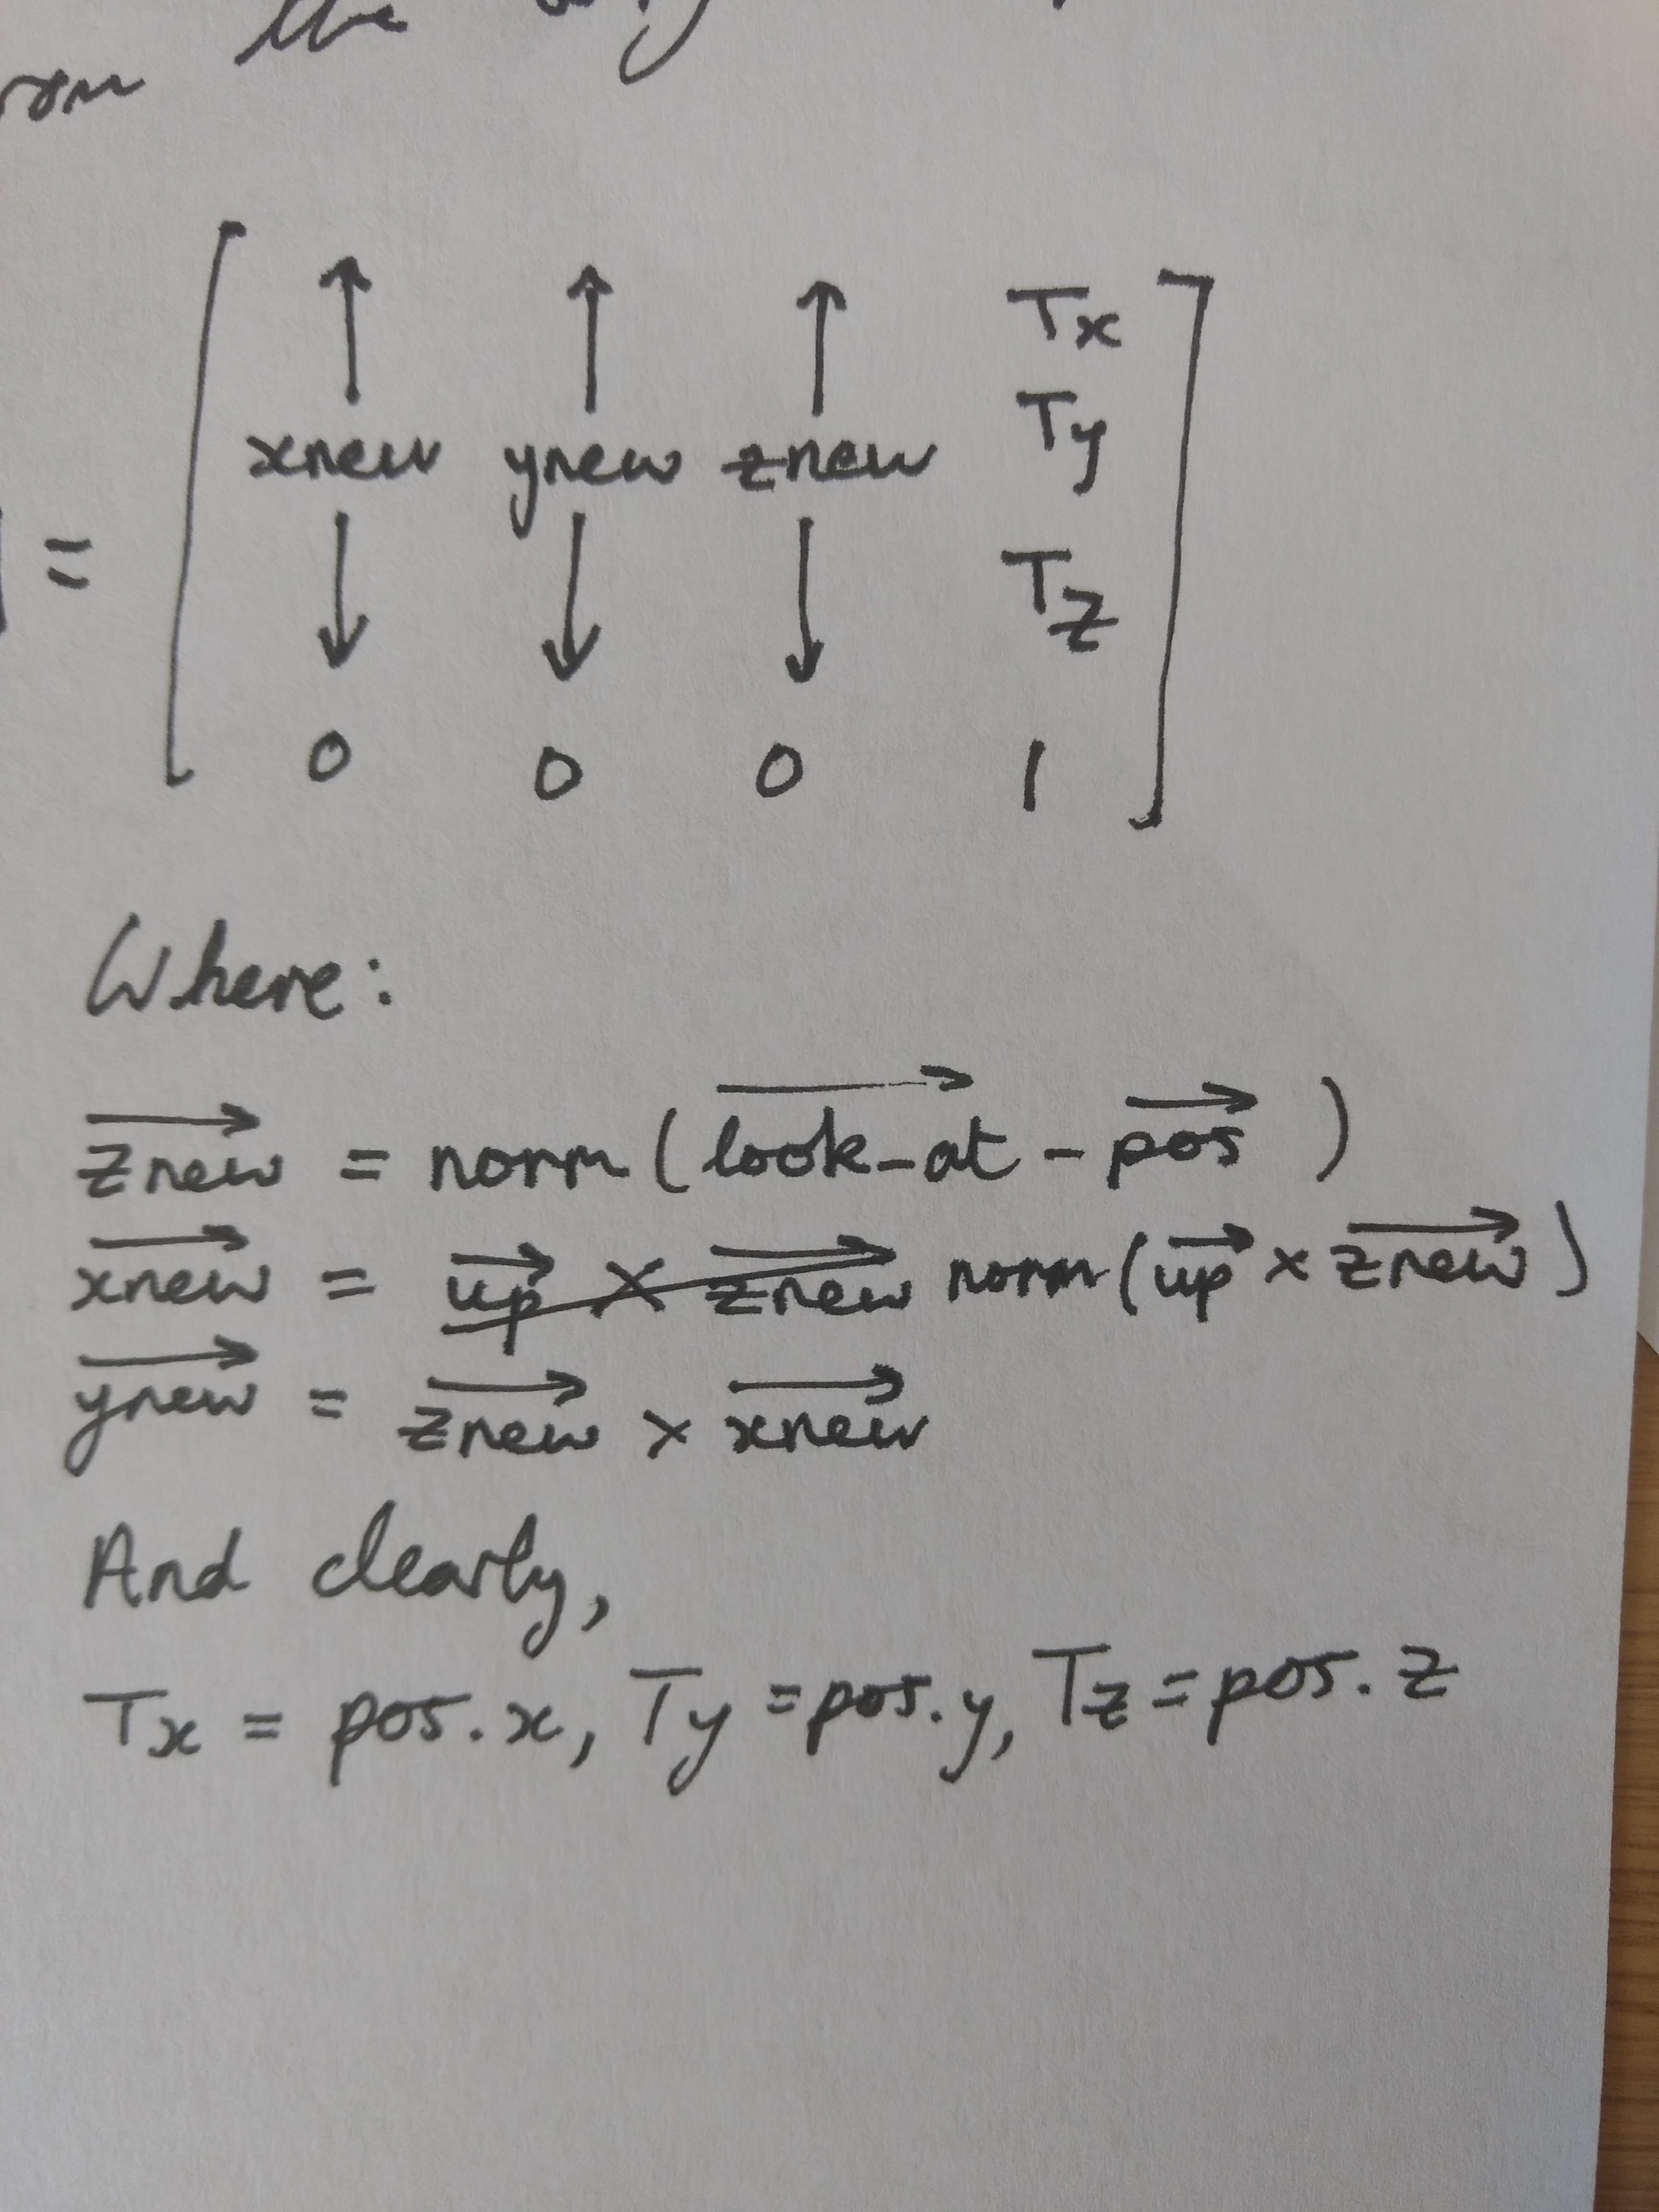 the
↑ ↑ ↑ Tx
Ty
xnew ynew znew
=
↓ ↓ ↓ Tz
0 0 0 1
Where:
znew = norm(look-at - pos)
xnew = up × znew norm(up × znew)
ynew = znew × xnew
And clearly,
Tx = pos.x, Ty = pos.y, Tz = pos.z